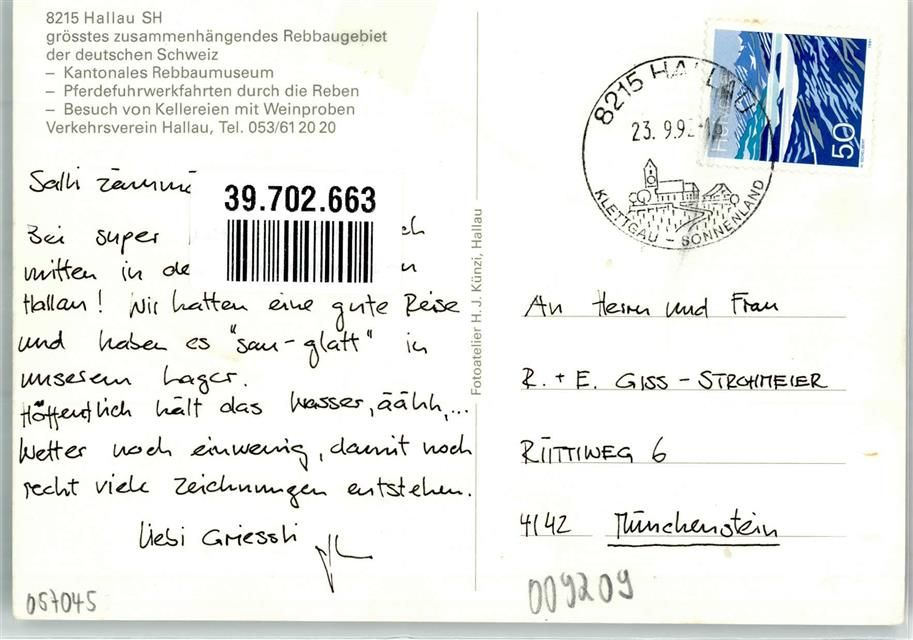 8215 Hallau SH
grösstes zusammenhängendes Rebbaugebiet
der deutschen Schweiz
– Kantonales Rebbaumuseum
– Pferdefuhrwerkfahrten durch die Reben
– Besuch von Kellereien mit Weinproben
Verkehrsverein Hallau, Tel. 053/61 20 20
Salli zämmä
39.702.663
Bei super
mitten in de
Hallau! Wir hatten eine gute Reise
und haben es "sau-glatt" in
unserem Lager.
Höffentlich hält das Wasser, äähh,...
Wetter noch einwenig, damit noch
recht viele Zeichnungen entstehen.
Liebi Griessli
057045
Fotoatelier H. J. Künzi, Hallau
8215 HALLAU
23. 9.92
KLETTGAU – SONNENLAND
HELVETIA
50
An Herrn und Frau
R. + E. GISS-STROHMEIER
RÜTTIWEG 6
4142 Münchenstein
009209